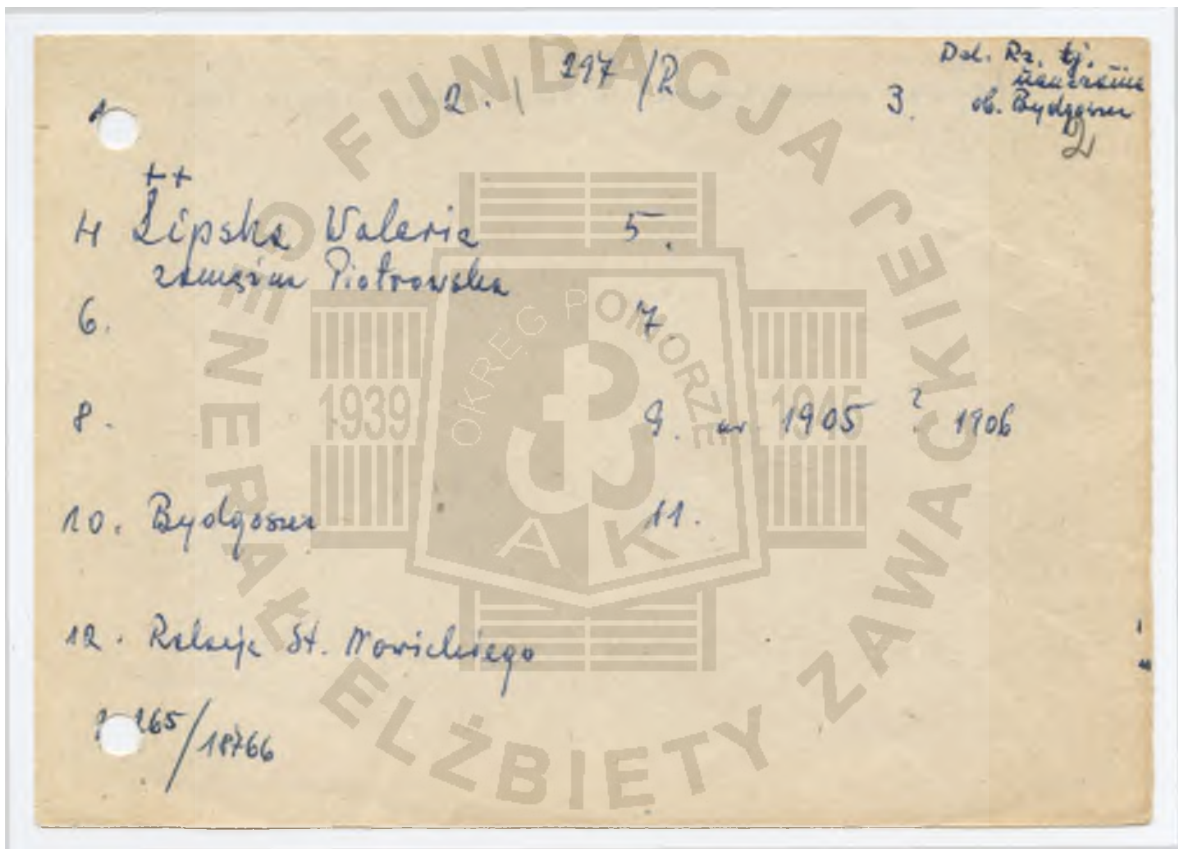 Del. Rz. tj.
nauczanie
1 2. 297/R 3. ob. Bydgoszcz
2
++
4 Lipska Waleria 5.
zamężna Piotrowska
6. 7.
8. 9. ur. 1905 ? 1906
10. Bydgoszcz 11.
12. Relacja St. Nowickiego
265/18766
FUNDACJA GENERAŁ ELŻBIETY ZAWACKIEJ
OKRĘG POMORZE
1939 1945
AK